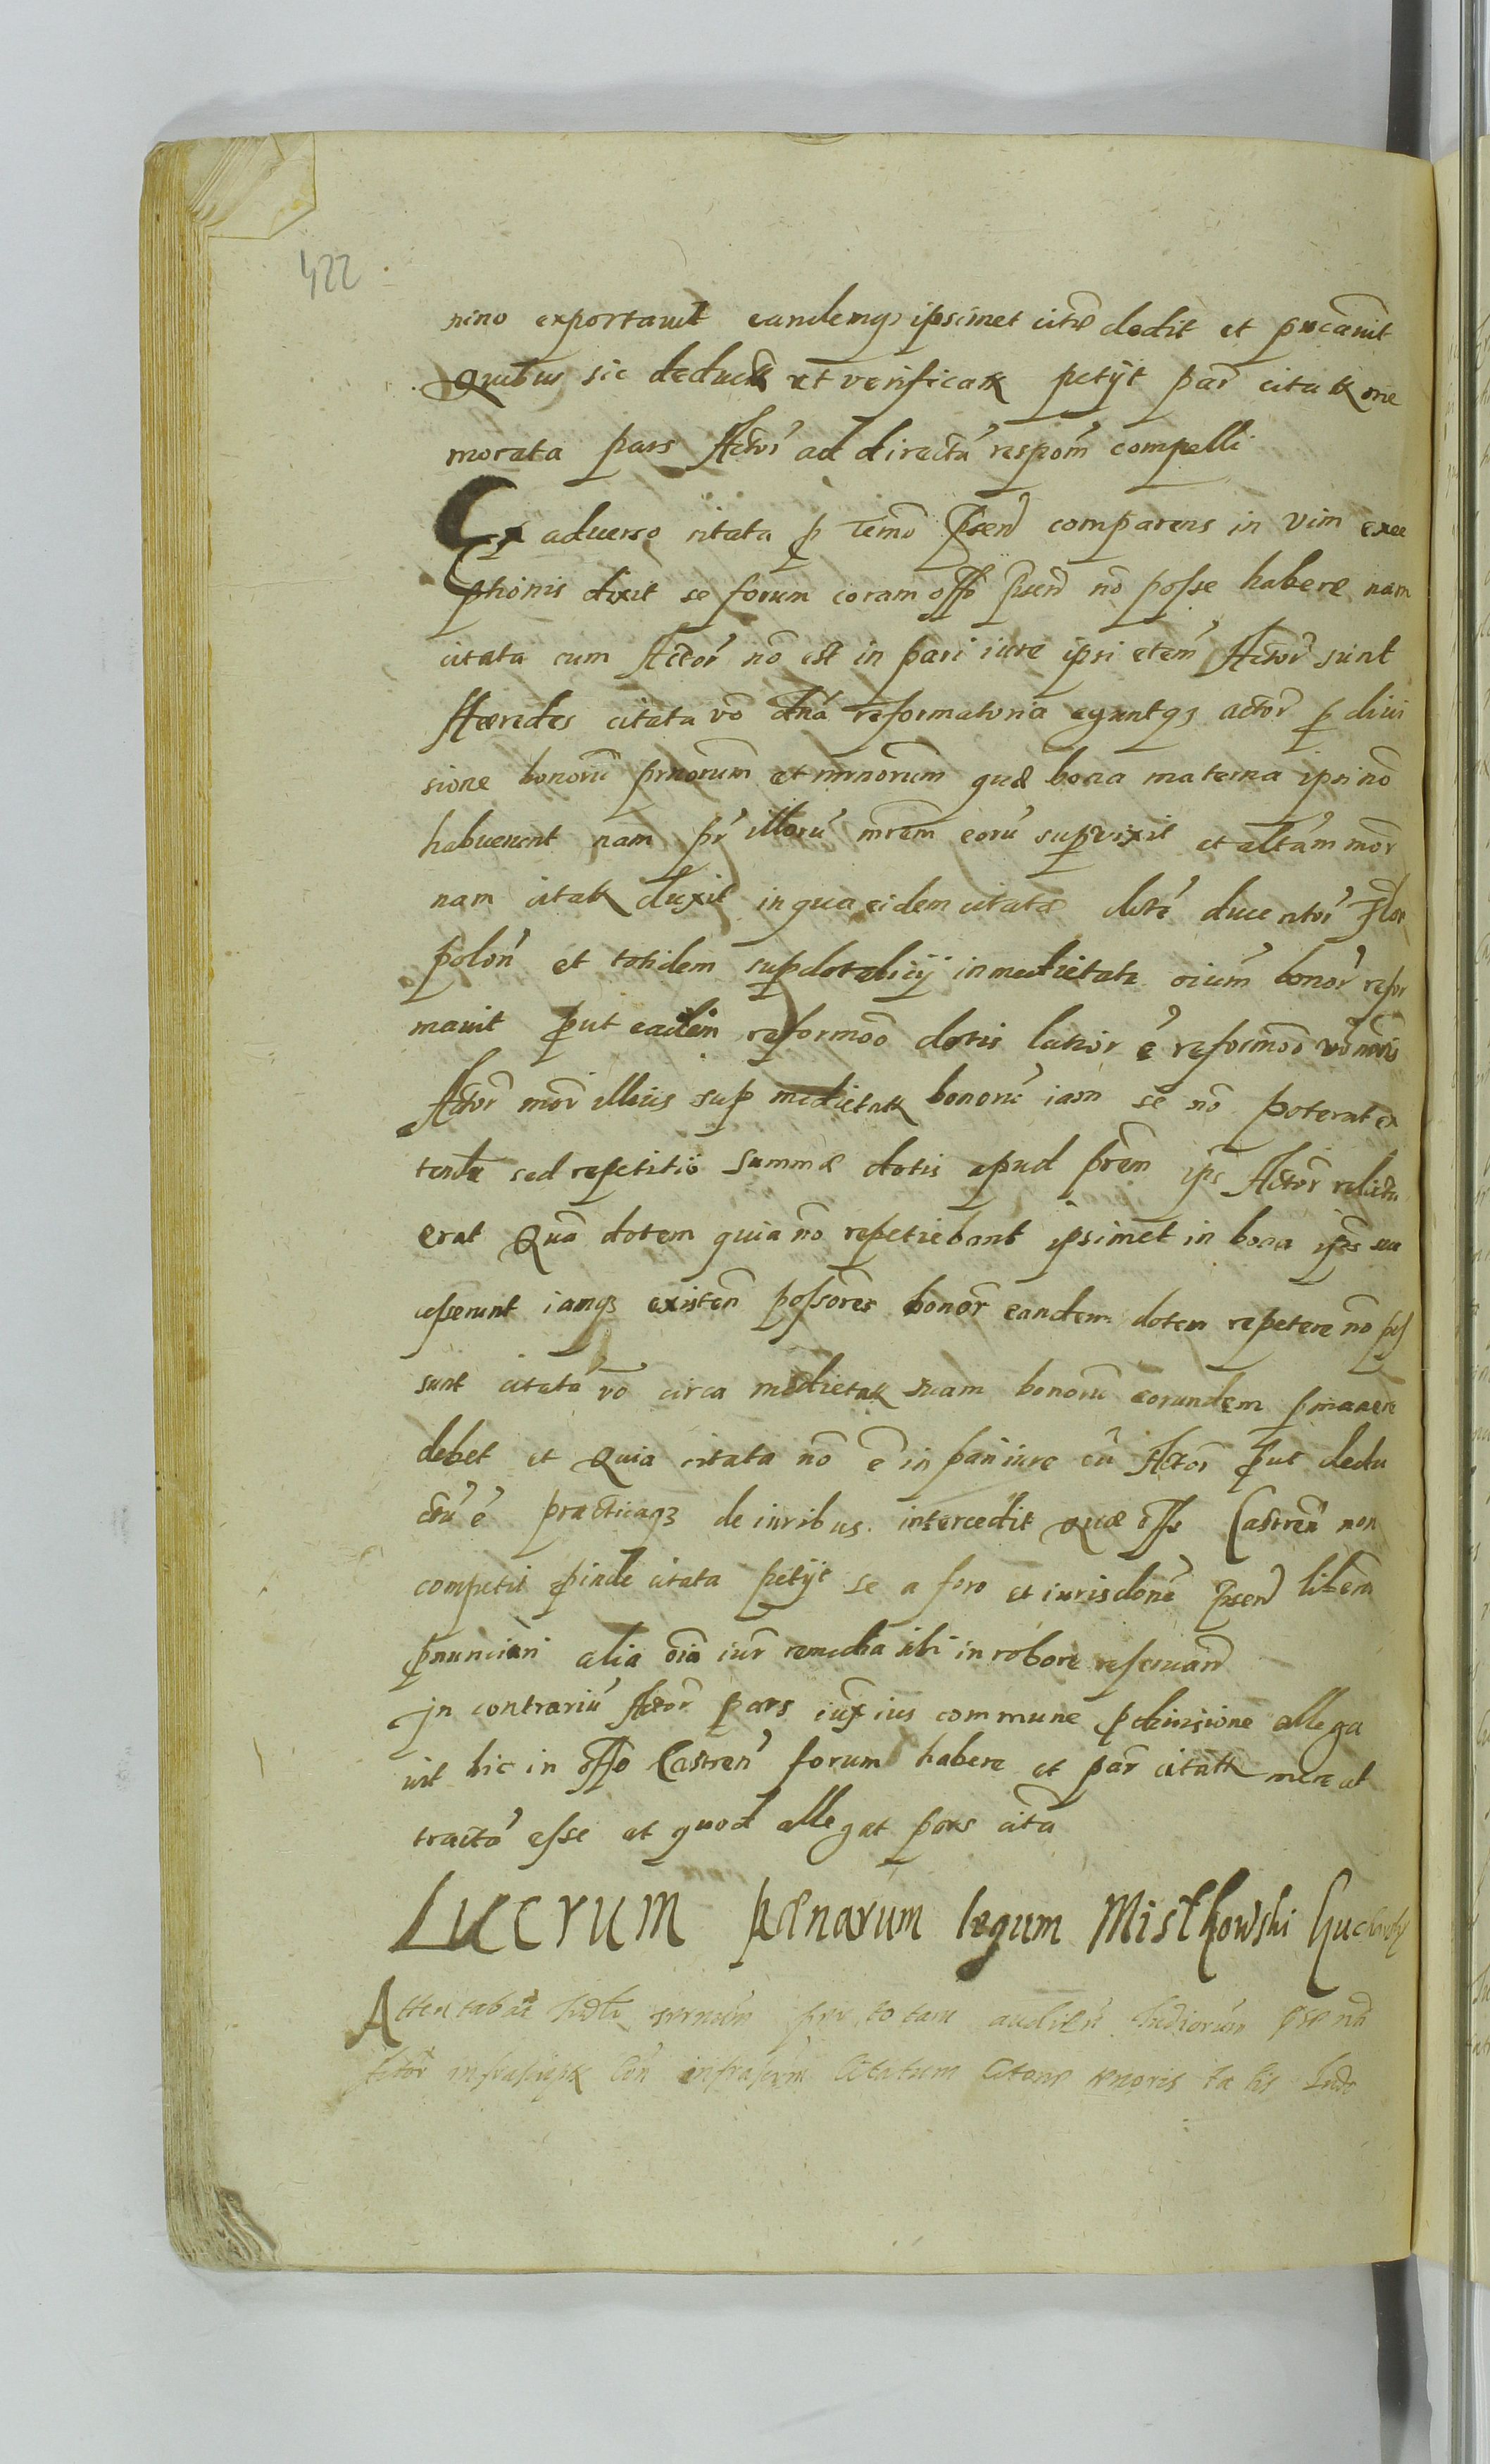 422
nino exportavit eandemq3 ipsimet citae dedit et pucavit
Quibus sic deduct et verificat petijt par citat me
morata pars Actor ad directa respom compelli
Ex adverso citata p Temo Psen comparens in vim exce
ptionis dixit se forum coram offo Psen no posse habere nam
citata cum Actor no est in pari iure ipsi etem Actor sunt
Haeredes citata vo dna reformatoria aguntq3 actor p divi
sione bonoru prnorum et mrnorum quae bona materna ipsi no
habuerunt nam pr illoru mrem eoru supvixit et altam mor
nam citat duxit in qua eidem citatae dote ducentor Flor
polon et totidem supdotalicij in medietate oium bonor refor
mavit put eadem reformoo dotis latior e reformoo vo mris
Actor mor illius sup medietat bonoru iam se no poterat ex
tende sed repetitio summae dotis apud prem ips Actor relicta
erat Qua dotem quia no repetiebant ipsimet in bona ips suc
cesserunt iamq3 existen possores bonor eandem dotem repetere no pos
sunt citata vo circa medietat suam bonoru eorundem pmanere
debet et Quia citata no e in pari iure cu Actor put dedu
ctu e practicaq3 de iuribus intercedit quae offo Castren non
competit pinde citata petijt se a foro et iurisdone Psen liberam
pnunciari alia oia iur remedia sibi in robore reservand
In contrariu Actor pars iux ius commune p divisione allega
vit hic in offo Castren forum habere et par citat mere at
tracta esse et quod allegat pars cita
Lucrum paenarum legum Mistkowski
Attentabat Judm per totam audien Judiorum
Actor infrascript infrascrm Citatum Citone tenoris talis